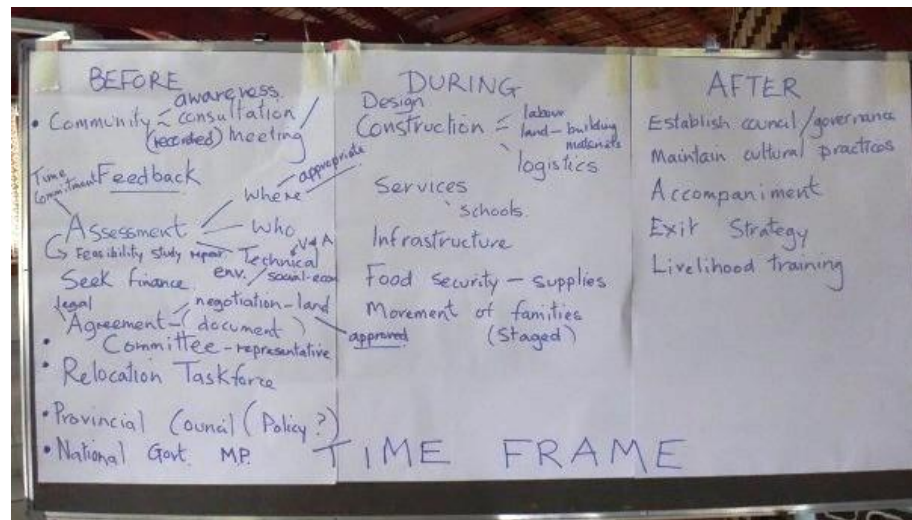 BEFORE
awareness.
• Community - consultation
(recorded) Meeting
Time
Commitment Feedback
appropriate
Where
Assessment - Who
Feasibility study repair Technical V&A
env. / social-econ
Seek finance
legal negotiation - land
Agreement - (document)
approved
• Committee - representative
• Relocation Taskforce
• Provincial Council (Policy?)
• National Govt. MP.
DURING
Design
Construction = labour
land - building
materials
logistics
Services
schools.
Infrastructure
Food security - supplies
Movement of families
(Staged)
AFTER
Establish council/governance
Maintain cultural practices
Accompaniment
Exit Strategy
Livelihood training
TIME FRAME